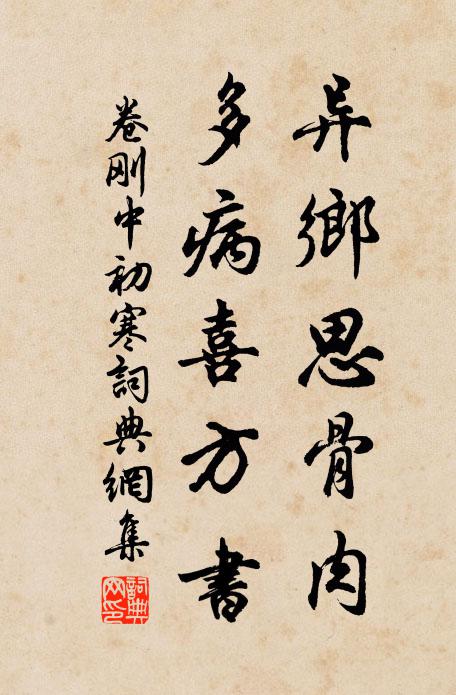 异鄉思骨肉
多病喜方書
卷刚中初寒詞典網集
詞典
网印